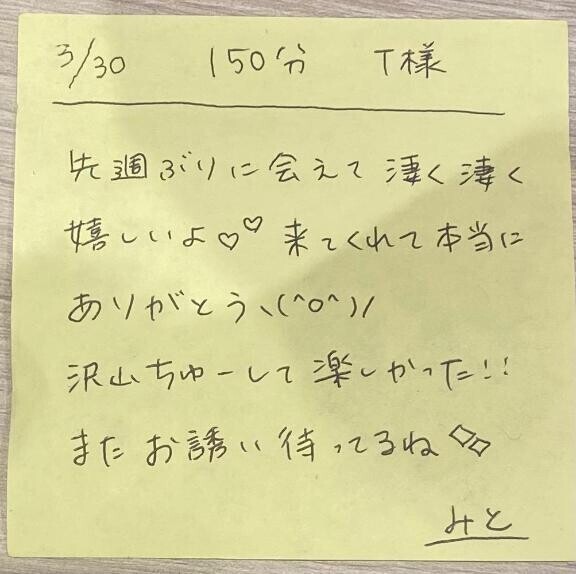 3/30 150分 T様
先週ぶりに会えて凄く凄く
嬉しいよ♡♡来てくれて本当に
ありがとう\(^o^)/
沢山ちゅーして楽しかった!!
またお誘い待ってるね◇◇
みと